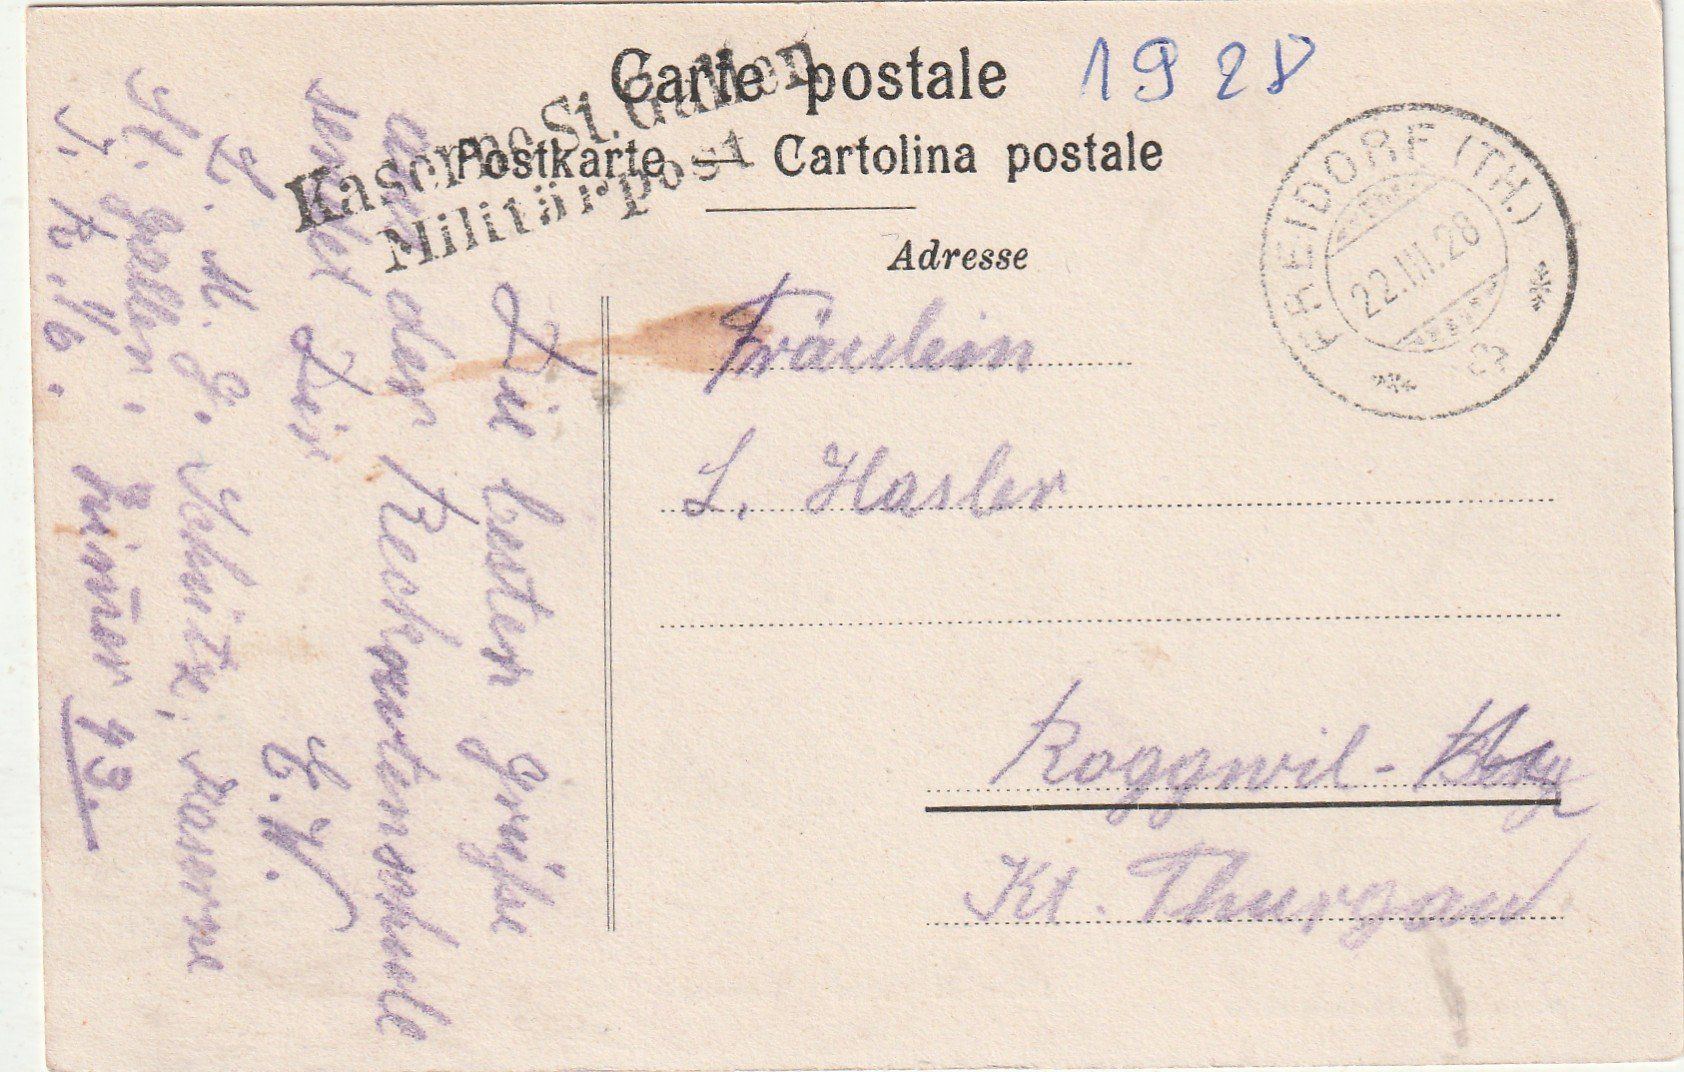 Carte postale
1928
Postkarte — Cartolina postale
Kaserne St. Gallen
Militärpost
Adresse
FREIDORF (TH.)
22.III.28
Fräulein
L. Hasler
Roggwil-
Kt. Thurgau
Die besten Grüsse
aus der Rekrutenschule
sendet Dir
E. W.
D. M. G. Schütz, Kaserne
St. Gallen.
I. R. 1/6. Zim̄er 43.